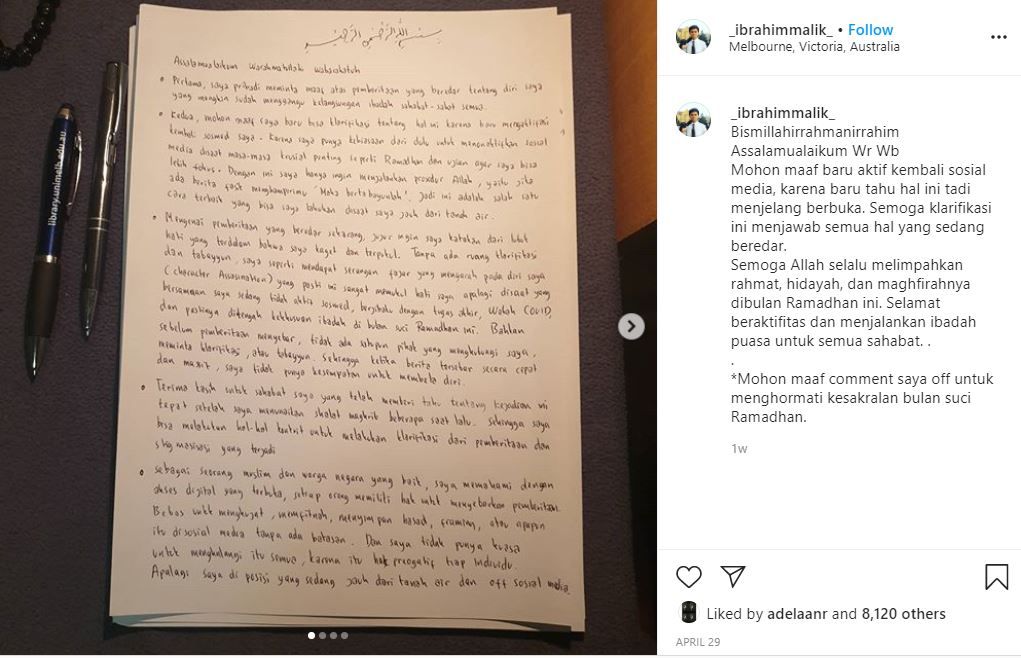 بسم الله الرحمن الرحيم
Assalamualaikum Warahmatullah Wabarakatuh
• Pertama, saya pribadi meminta maaf atas pemberitaan yang beredar tentang diri saya
yang mungkin sudah mengganggu kelangsungan ibadah sahabat-sabat semua.
• Kedua, mohon maaf saya baru bisa klarifikasi tentang hal ini karena baru mengaktifkan
kembali sosmed saya. Karena saya punya kebiasaan dari dulu untuk menonaktifkan sosial
media disaat masa-masa krusial penting seperti Ramadhan dan ujian agar saya bisa
lebih fokus. Dengan ini saya hanya ingin menjalankan prosedur Allah, yaitu jika
ada berita fasik menghampirimu 'Maka bertabayunlah'. Jadi ini adalah salah satu
cara terbaik yang bisa saya lakukan disaat saya jauh dari tanah air.
• Mengenai pemberitaan yang beredar sekarang, jujur ingin saya katakan dari lubuk
hati yang terdalam bahwa saya kaget dan terpukul. Tanpa ada ruang klarifikasi
dan tabayyun, saya seperti mendapat serangan fajar yang mengarah pada diri saya
(character Assasination) yang pasti ini sangat memukul hati saya apalagi disaat yang
bersamaan saya sedang tidak aktif sosmed, berjibaku dengan tugas akhir, Wabah COVID,
dan pastinya ditengah kekhusuan ibadah di bulan suci Ramadhan ini. Bahkan
sebelum pemberitaan menyebar, tidak ada satupun pihak yang menghubungi saya,
meminta klarifikasi, atau tabayyun. Sehingga ketika berita tersebar secara cepat
dan massif, saya tidak punya kesempatan untuk membela diri.
• Terima kasih untuk sahabat saya yang telah memberi tahu tentang kejadian ini
tepat setelah saya menunaikan shalat maghrib beberapa saat lalu. Sehingga saya
bisa melakukan hal-hal konkrit untuk melakukan klarifikasi dari pemberitaan dan
stigmasisasi yang terjadi
• Sebagai seorang muslim dan warga negara yang baik, saya memahami dengan
akses digital yang terbuka, setiap orang memiliki hak untuk menyebarkan pemberitaan.
Bebas untuk menghujat, memfitnah, menyimpan hasad, framing, atau apapun
itu disosial media tanpa ada batasan. Dan saya tidak punya kuasa
untuk menghalangi itu semua, karena itu hak preogatif tiap individu.
Apalagi saya di posisi yang sedang jauh dari tanah air dan off sosial media.
library.unimelb.edu.au
_ibrahimmalik_ • Follow
Melbourne, Victoria, Australia
_ibrahimmalik_
Bismillahirrahmanirrahim
Assalamualaikum Wr Wb
Mohon maaf baru aktif kembali sosial
media, karena baru tahu hal ini tadi
menjelang berbuka. Semoga klarifikasi
ini menjawab semua hal yang sedang
beredar.
Semoga Allah selalu melimpahkan
rahmat, hidayah, dan maghfirahnya
dibulan Ramadhan ini. Selamat
beraktifitas dan menjalankan ibadah
puasa untuk semua sahabat. .
.
*Mohon maaf comment saya off untuk
menghormati kesakralan bulan suci
Ramadhan.
1w
Liked by adelaanr and 8,120 others
APRIL 29